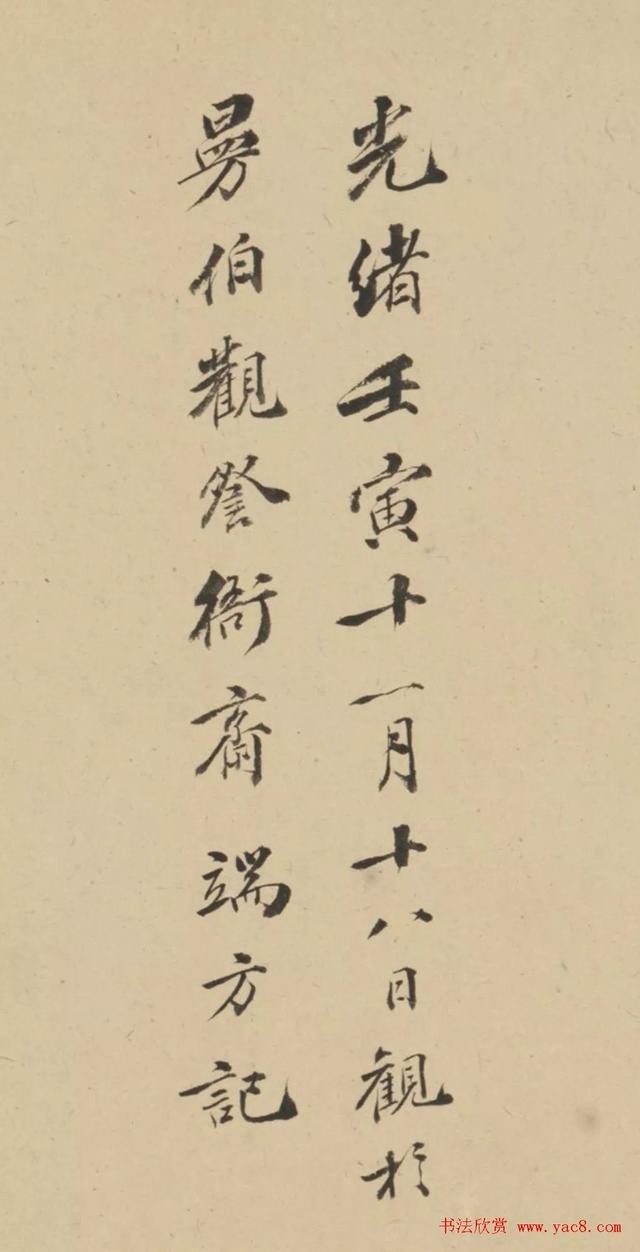 光緒壬寅十一月十八日觀於
易伯觀詧衙齋端方記
书法欣赏 www.yac8.com